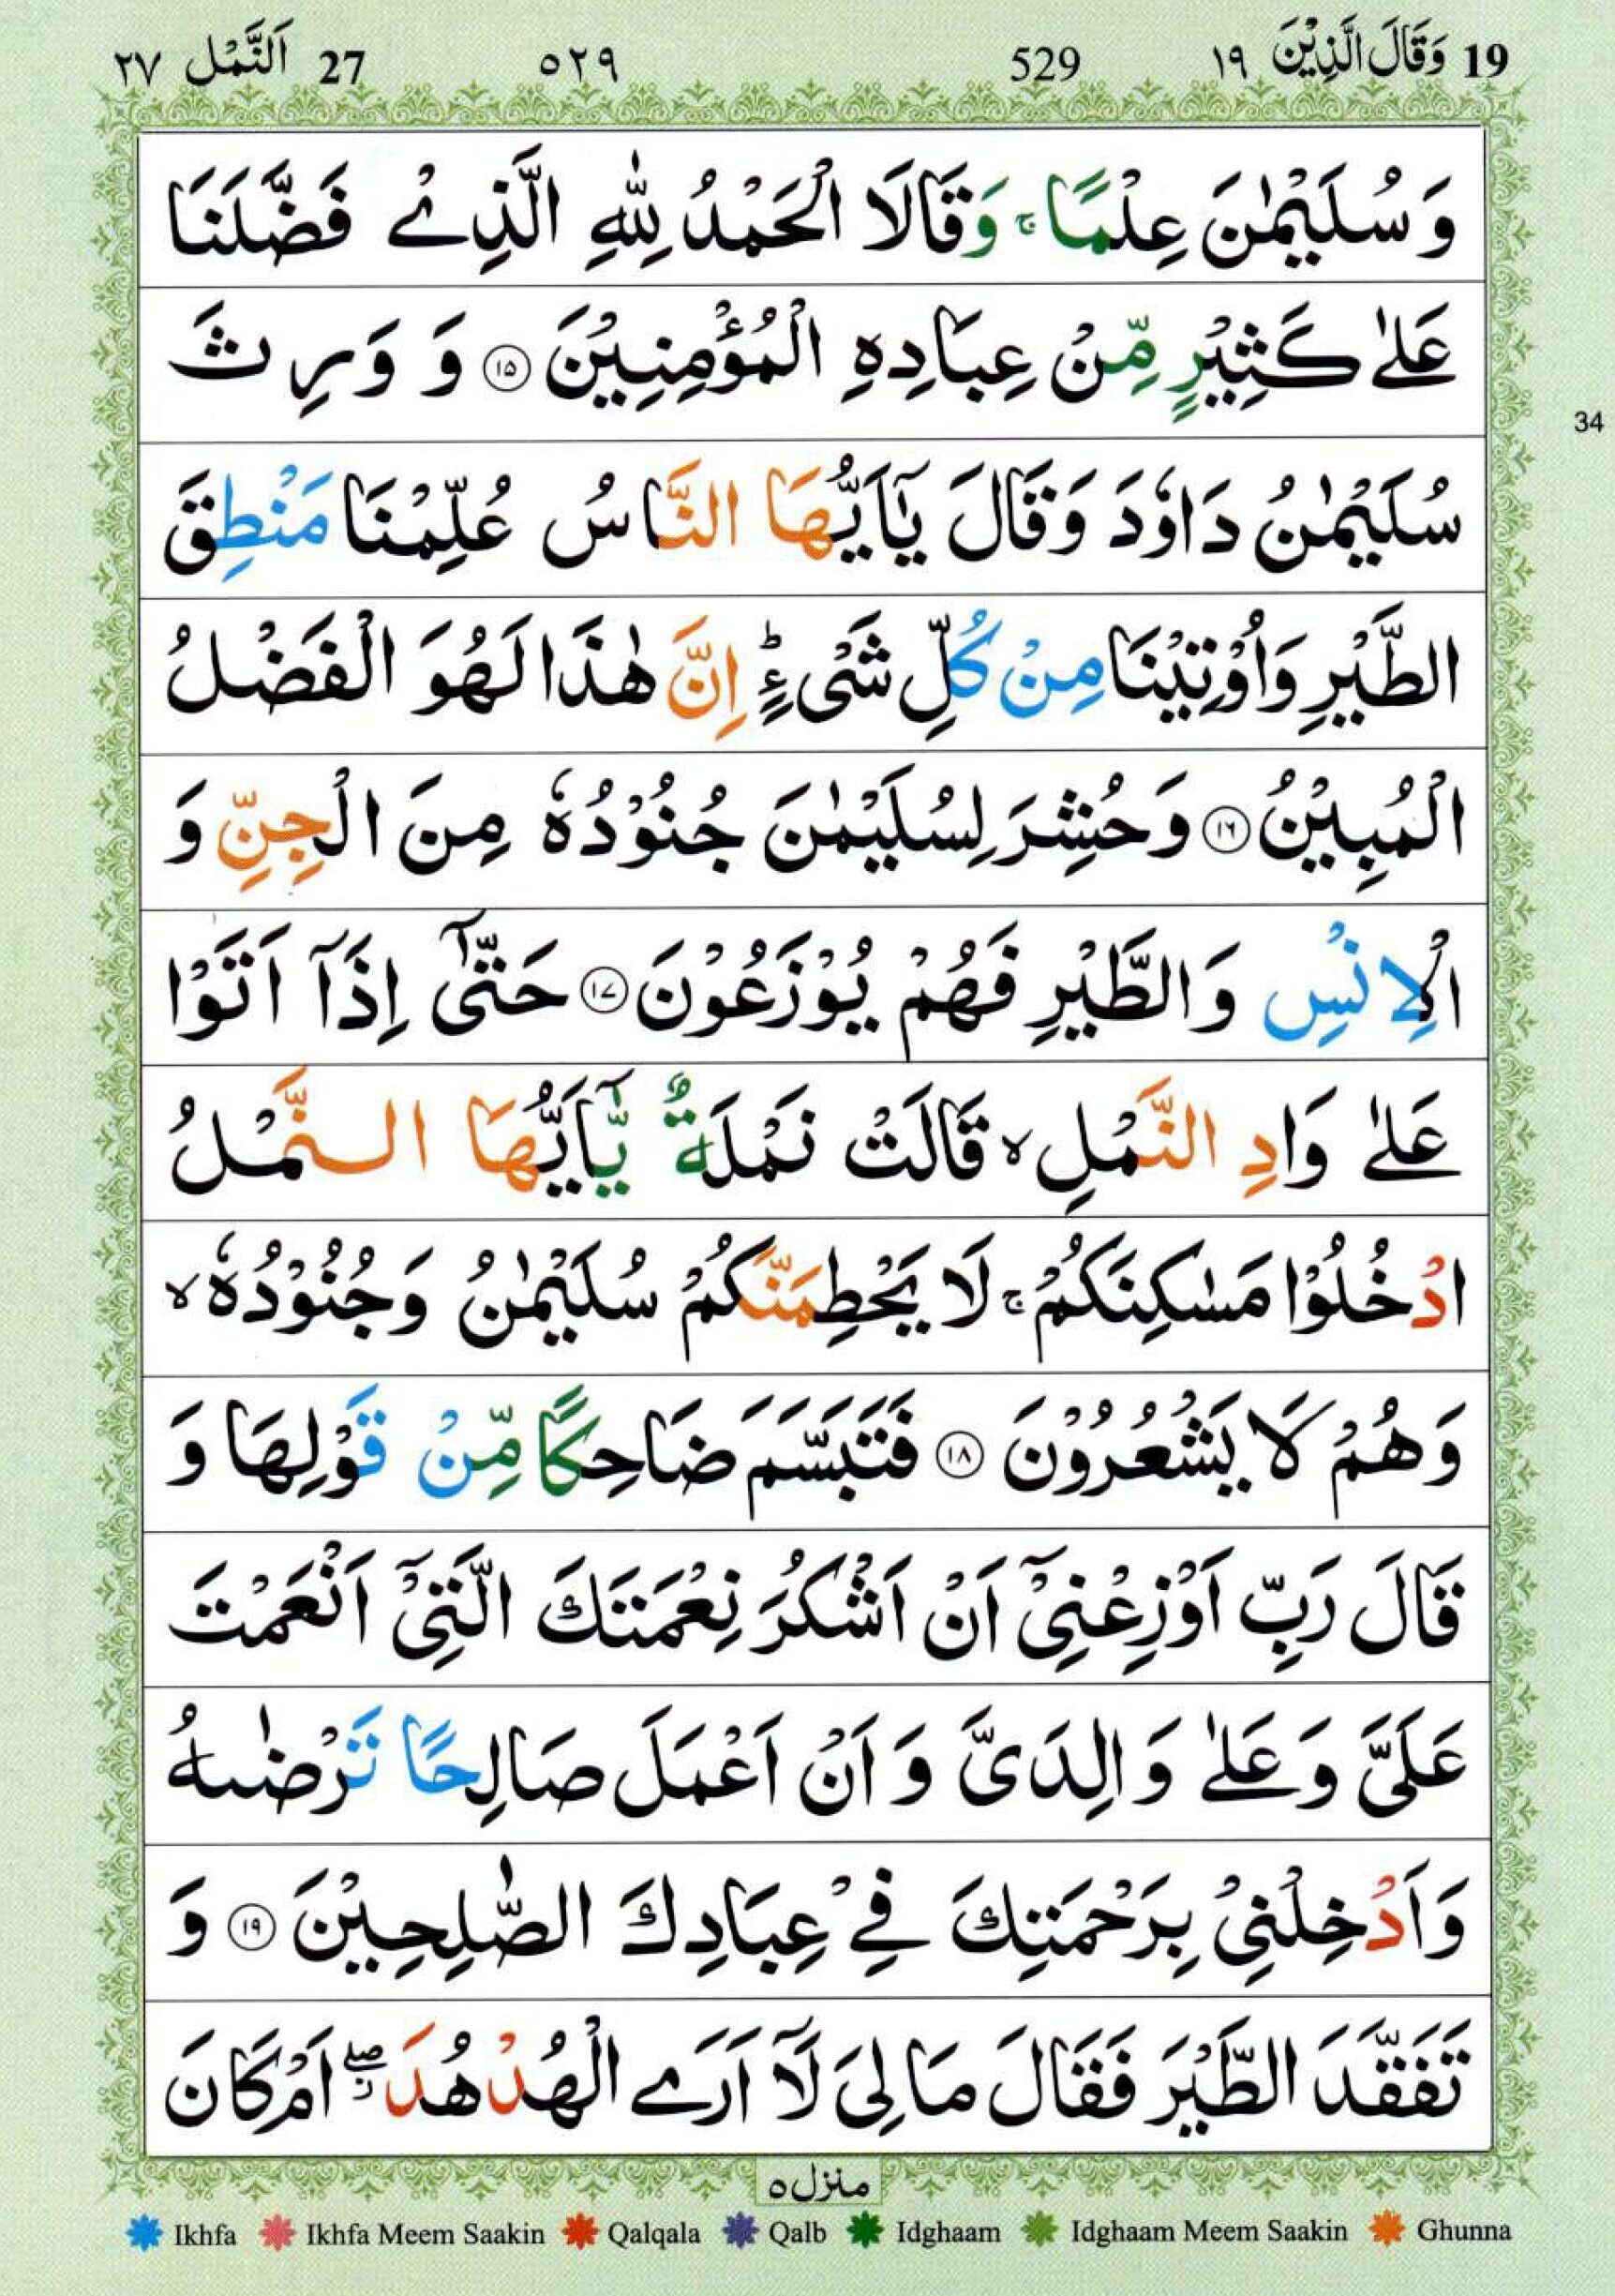 19 وَقَالَ الَّذِيْنَ ١٩ 529 ٥٢٩ 27 اَلنَّمْل ٢٧
وَ سُلَيْمٰنَ عِلْمًا ۚ وَقَالَا الْحَمْدُ لِلّٰهِ الَّذِیْ فَضَّلَنَا
عَلٰى كَثِيْرٍ مِّنْ عِبَادِهِ الْمُؤْمِنِيْنَ ﴿١٥﴾ وَ وَرِثَ
سُلَيْمٰنُ دَاوٗدَ وَقَالَ يٰۤاَيُّهَا النَّاسُ عُلِّمْنَا مَنْطِقَ
الطَّيْرِ وَاُوْتِيْنَا مِنْ كُلِّ شَیْءٍ ؕ اِنَّ هٰذَا لَهُوَ الْفَضْلُ
الْمُبِيْنُ ﴿١٦﴾ وَحُشِرَ لِسُلَيْمٰنَ جُنُوْدُهٗ مِنَ الْجِنِّ وَ
الْاِنْسِ وَالطَّيْرِ فَهُمْ يُوْزَعُوْنَ ﴿١٧﴾ حَتّٰۤى اِذَاۤ اَتَوْا
عَلٰى وَادِ النَّمْلِ ۙ قَالَتْ نَمْلَةٌ يّٰۤاَيُّهَا النَّمْلُ
ادْخُلُوْا مَسٰكِنَكُمْ ۚ لَا يَحْطِمَنَّكُمْ سُلَيْمٰنُ وَجُنُوْدُهٗ ۙ
وَهُمْ لَا يَشْعُرُوْنَ ﴿١٨﴾ فَتَبَسَّمَ ضَاحِكًا مِّنْ قَوْلِهَا وَ
قَالَ رَبِّ اَوْزِعْنِیْۤ اَنْ اَشْكُرَ نِعْمَتَكَ الَّتِیْۤ اَنْعَمْتَ
عَلَیَّ وَعَلٰى وَالِدَیَّ وَ اَنْ اَعْمَلَ صَالِحًا تَرْضٰىهُ
وَاَدْخِلْنِیْ بِرَحْمَتِكَ فِیْ عِبَادِكَ الصّٰلِحِيْنَ ﴿١٩﴾ وَ
تَفَقَّدَ الطَّيْرَ فَقَالَ مَا لِیَ لَاۤ اَرَى الْهُدْهُدَ ۖؗ اَمْ كَانَ
34
منزل ٥
Ikhfa Ikhfa Meem Saakin Qalqala Qalb Idghaam Idghaam Meem Saakin Ghunna